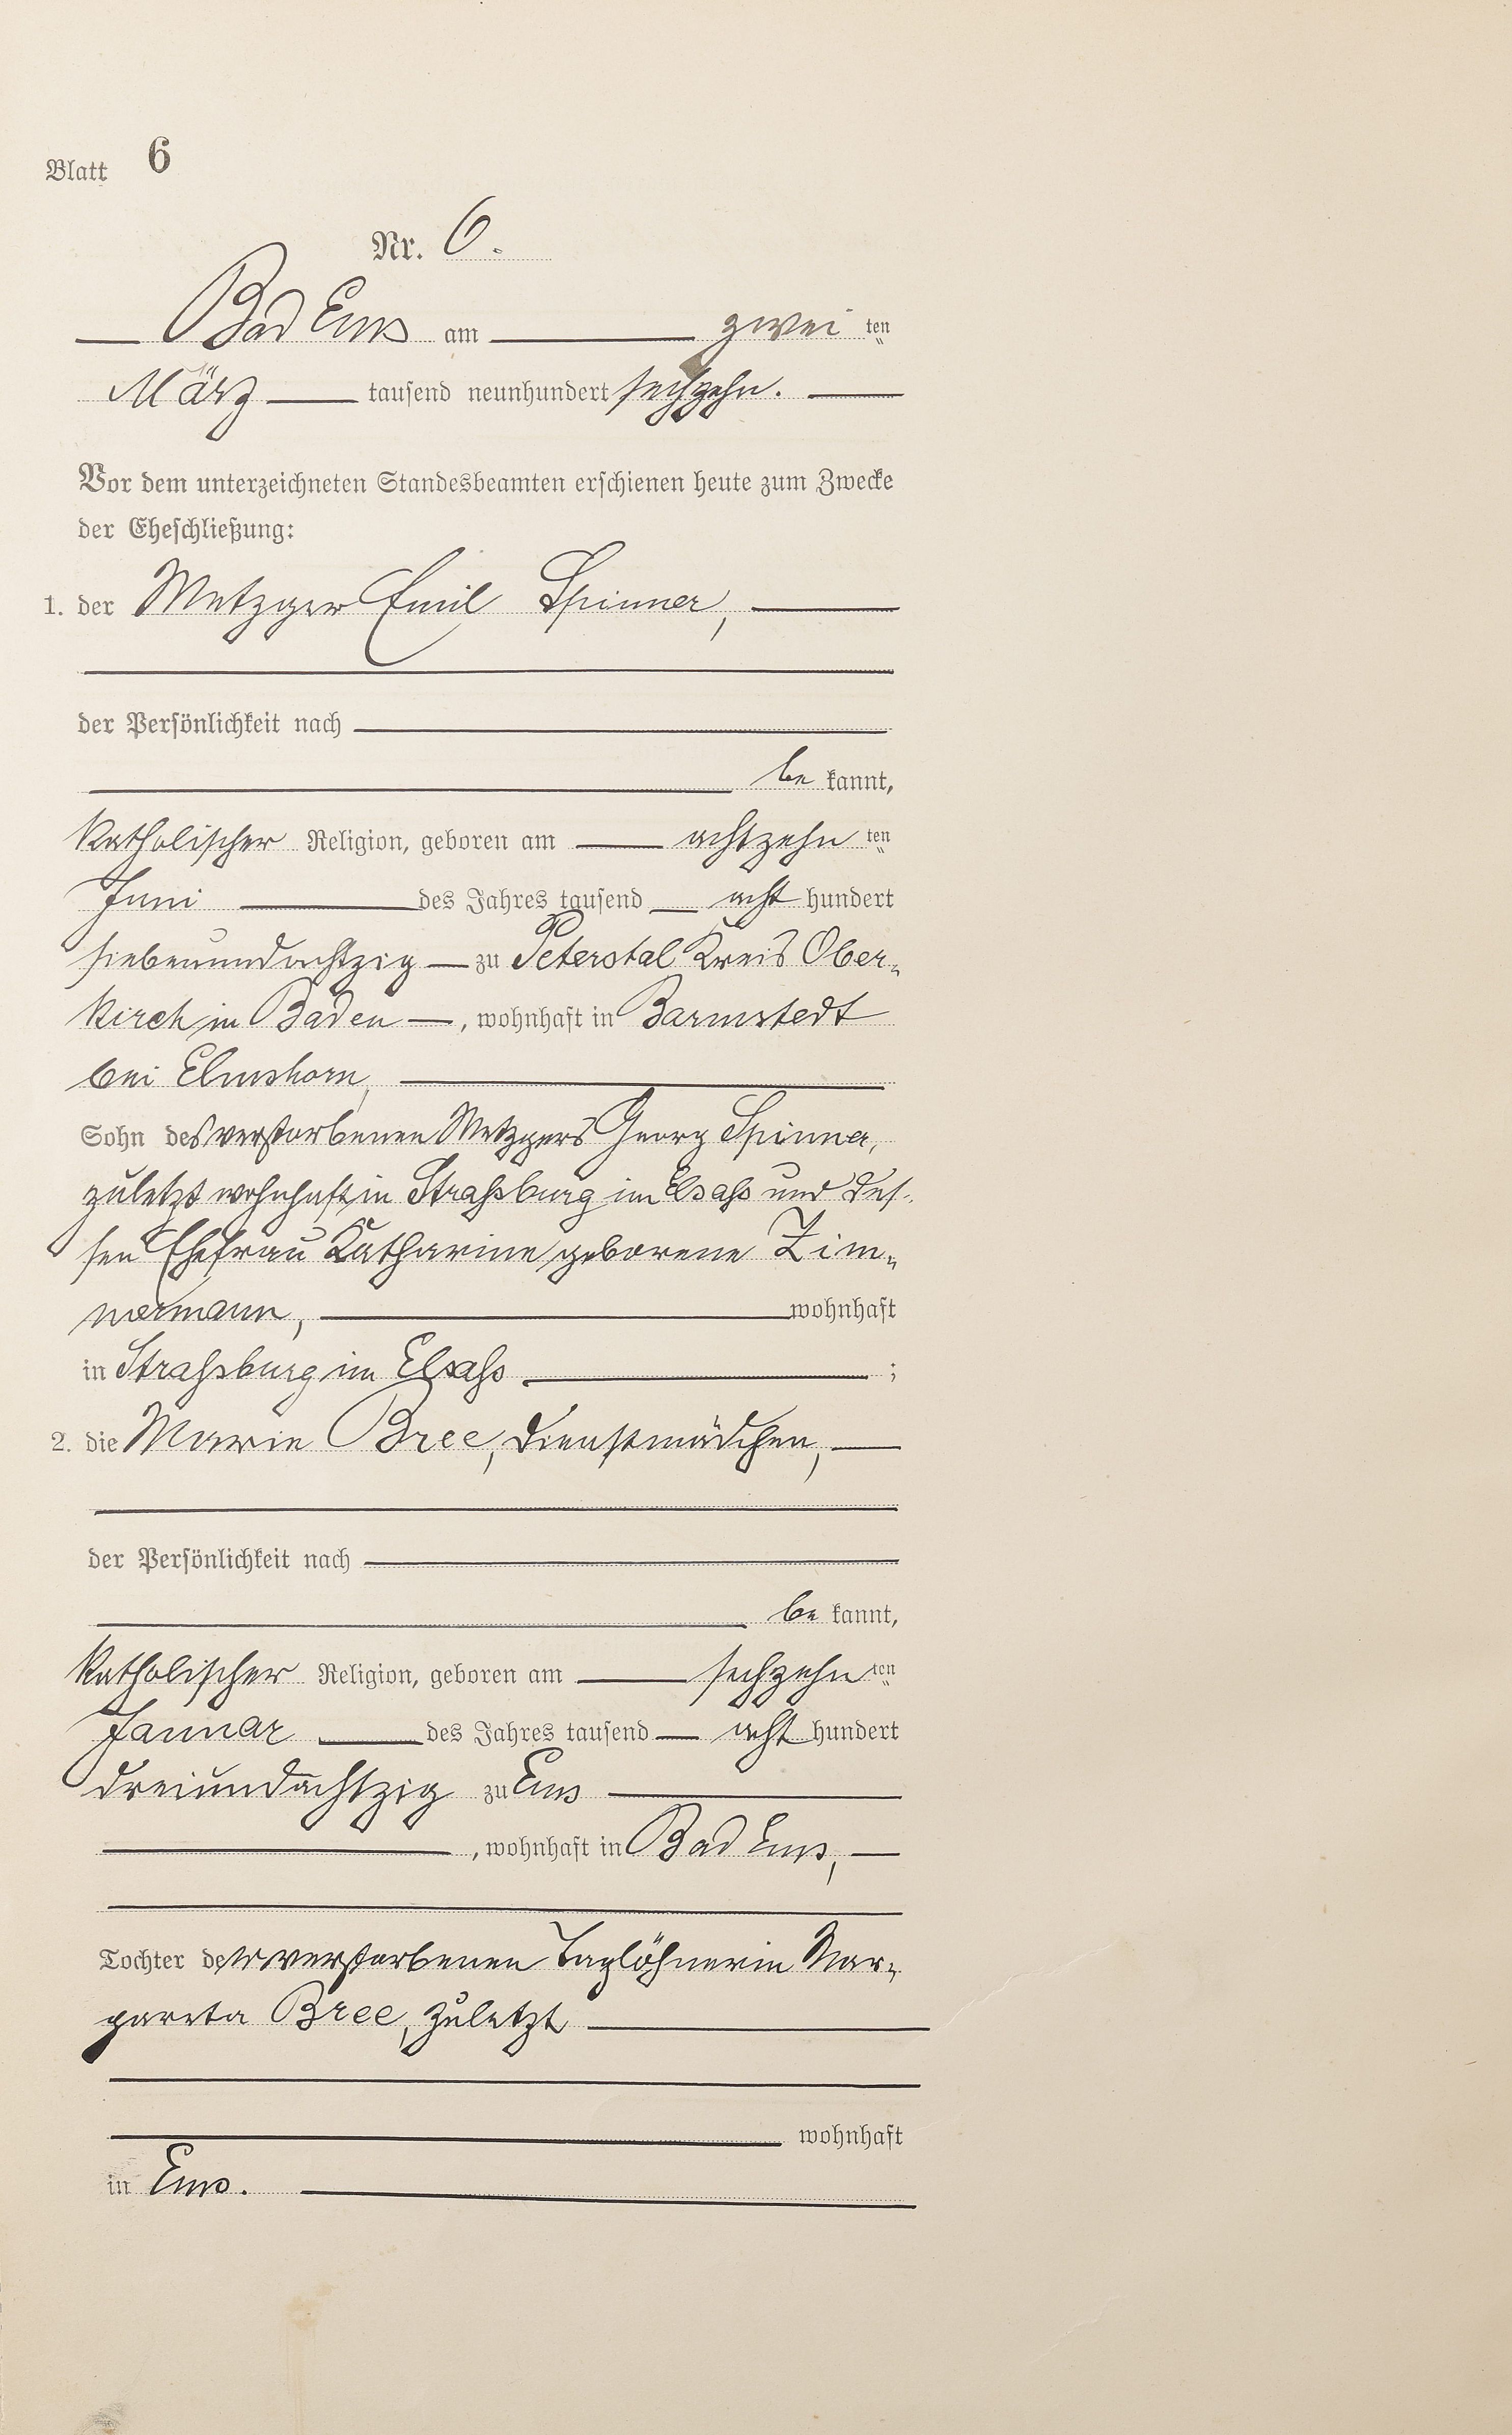 Blatt 6
Nr. 6.
Bad Ems am zwei ten
März tausend neunhundert sechzehn.
Vor dem unterzeichneten Standesbeamten erschienen heute zum Zwecke
der Eheschließung:
1. der Metzger Emil Spinner,
der Persönlichkeit nach
be kannt,
katholischer Religion, geboren am achtzehn ten
Juni des Jahres tausend acht hundert
siebenundachtzig zu Peterstal Kreis Ober-
kirch in Baden, wohnhaft in Barmstedt
bei Elmshorn,
Sohn des verstorbenen Metzgers Georg Spinner,
zuletzt wohnhaft in Straßburg im Elsaß und des-
sen Ehefrau Katharine geborene Zim-
mermann, wohnhaft
in Straßburg im Elsaß ;
2. die Marie Bree, Dienstmädchen,
der Persönlichkeit nach
be kannt,
katholischer Religion, geboren am sechzehn ten
Januar des Jahres tausend acht hundert
dreiundachtzig zu Ems
, wohnhaft in Bad Ems,
Tochter der verstorbenen Taglöhnerin Mar-
gareta Bree, zuletzt
wohnhaft
in Ems.